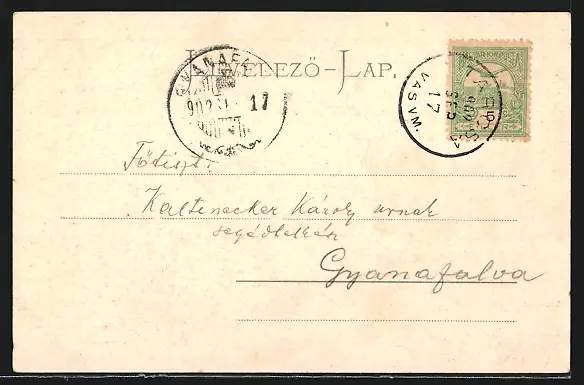 LEVELEZŐ-LAP.
GYANAFA
902
17
902
SEP
17
VASVM.
Főtiszt.
Kaltenecker Károly urnak
segédlelkész
Gyanafalva